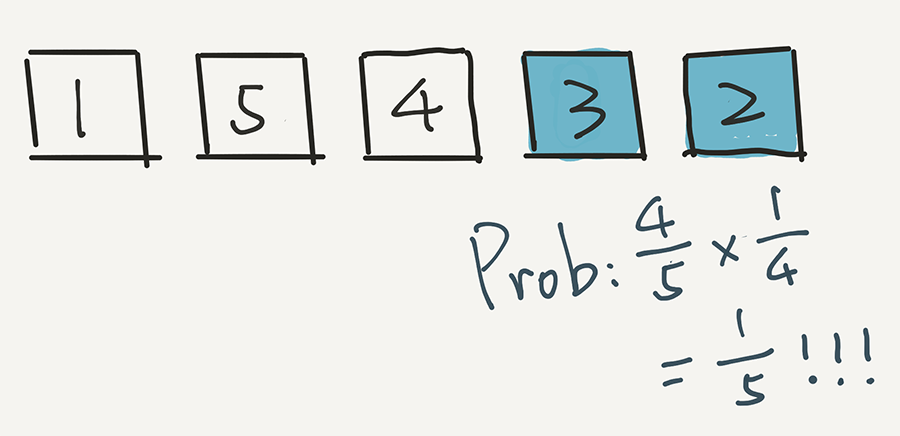 1 5 4 3 2
Prob: 4/5 × 1/4
= 1/5 !!!